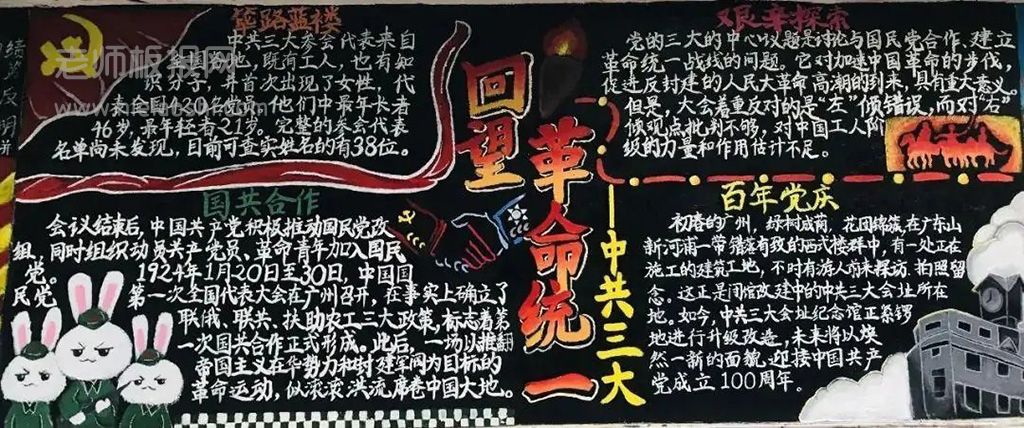 筚路蓝缕
中共三大参会代表来自
全国各地，既有工人，也有知
识分子，并首次出现了女性，代
表全国430名党员。他们中最年长者
46岁，最年轻者21岁。完整的参会代表
名单尚未发现，目前可查实姓名的有38位。
老师板报网
国共合作
会议结束后，中国共产党积极推动国民党改
组，同时组织动员共产党员、革命青年加入国民
党。
1924年1月20日至30日，中国国
民党
第一次全国代表大会在广州召开，在事实上确立了
联俄、联共、扶助农工三大政策，标志着第
一次国共合作正式形成。此后，一场以推翻
帝国主义在华势力和封建军阀为目标的
革命运动，似滚滚洪流席卷中国大地。
回望
革命统一
——中共三大
艰辛探索
党的三大的中心议题是讨论与国民党合作、建立
革命统一战线的问题。它对加速中国革命的步伐，
促进反封建的人民大革命高潮的到来，具有重大意义。
但是，大会着重反对的是“左”倾错误，而对“右”
倾观点批判不够，对中国工人阶
级的力量和作用估计不足。
百年党庆
初春的广州，绿树成荫，花团锦簇，在广东山
新河甫一带错落有致的西式楼群中，有一处正在
施工的建筑工地，不时有游人前来探访、拍照留
念。这正是闭馆改建中的中共三大会址所在
地。如今，中共三大会址纪念馆正紧锣
地进行升级改造，未来将以焕
然一新的面貌，迎接中国共产
党成立100周年。